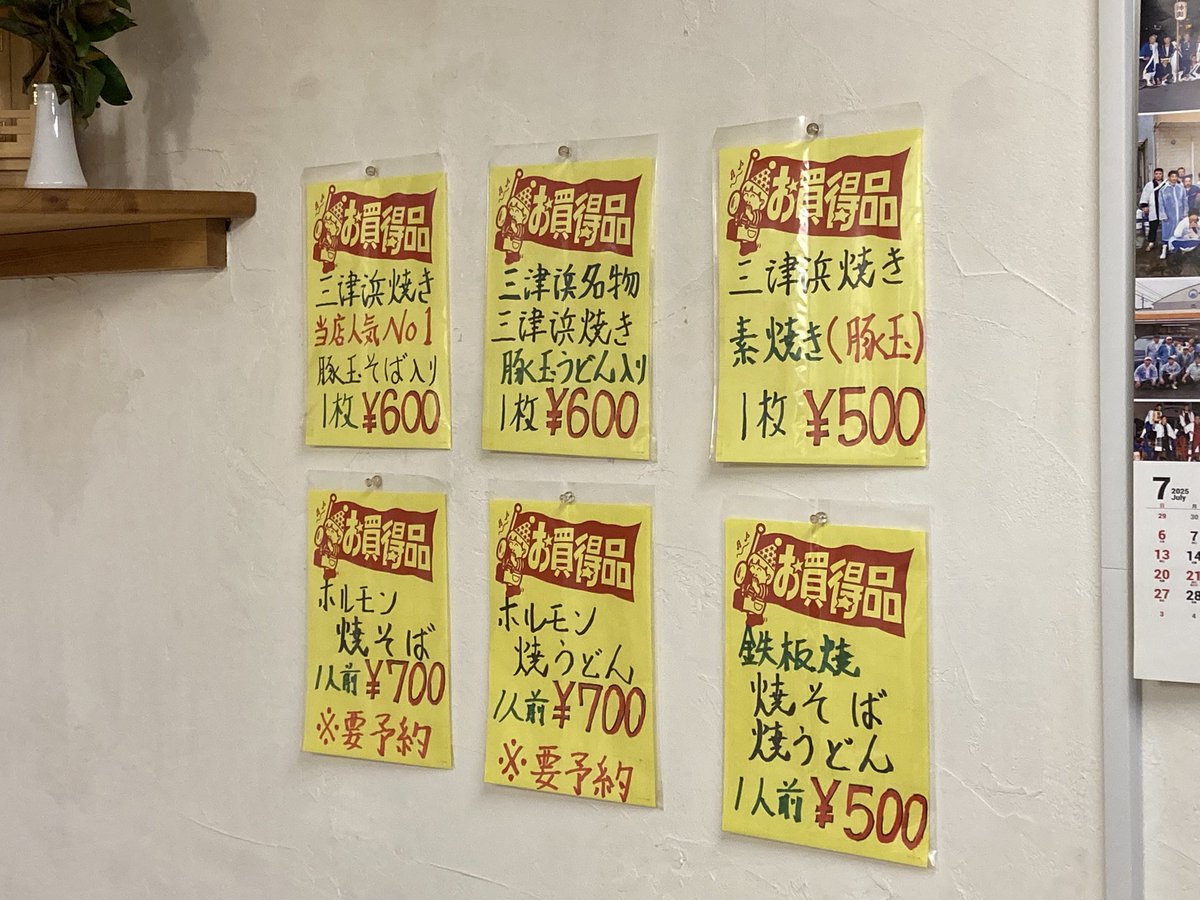 お買得品
三津浜焼き
当店人気No1
豚玉そば入り
1枚¥600
お買得品
三津浜名物
三津浜焼き
豚玉うどん入り
1枚¥600
お買得品
三津浜焼き
素焼き(豚玉)
1枚¥500
お買得品
ホルモン
焼そば
1人前¥700
※要予約
お買得品
ホルモン
焼うどん
1人前¥700
※要予約
お買得品
鉄板焼
焼そば
焼うどん
1人前¥500
7 2025 July
日 月
29 30
6 7
13 14
20 21
27 28
3 4